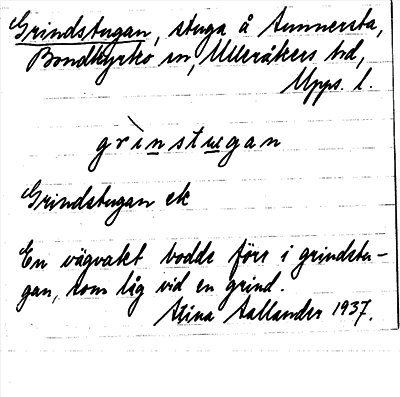 Grindstugan, stuga å Sunnersta,
Bondkyrko sn, Ulleråkers hd,
Upps. l.
grìnstugan
Grindstugan ek
En vägvakt bodde förr i grindstu-
gan, som låg vid en grind.
Stina Sallander 1937.